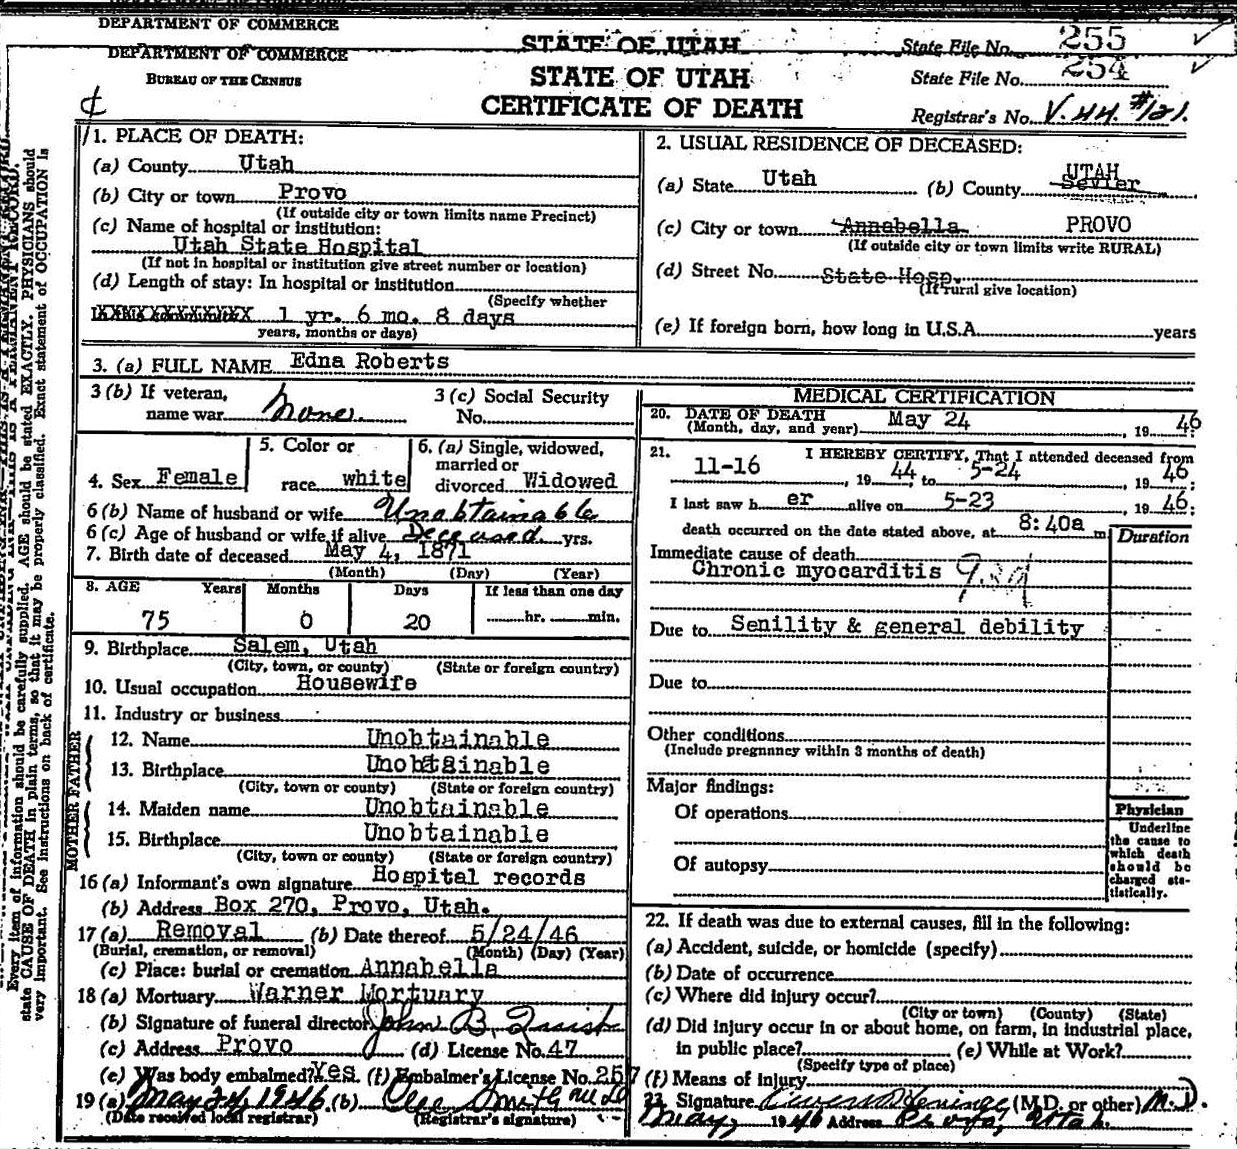 DEPARTMENT OF COMMERCE
STATE OF UTAH
State File No. 255
DEPARTMENT OF COMMERCE
BUREAU OF THE CENSUS
STATE OF UTAH
CERTIFICATE OF DEATH
State File No. 254
Registrar's No. V. 44. #121.
1. PLACE OF DEATH:
(a) County Utah
(b) City or town Provo
(If outside city or town limits name Precinct)
(c) Name of hospital or institution:
Utah State Hospital
(If not in hospital or institution give street number or location)
(d) Length of stay: In hospital or institution
(Specify whether
1 yr. 6 mo. 8 days
years, months or days)
2. USUAL RESIDENCE OF DECEASED:
(a) State Utah (b) County Sevier UTAH
(c) City or town Annabella PROVO
(If outside city or town limits write RURAL)
(d) Street No. State Hosp.
(If rural give location)
(e) If foreign born, how long in U.S.A. years
3. (a) FULL NAME Edna Roberts
3 (b) If veteran, name war None.
3 (c) Social Security No.
4. Sex Female
5. Color or race white
6. (a) Single, widowed, married or divorced Widowed
6 (b) Name of husband or wife Unobtainable
6 (c) Age of husband or wife if alive Deceased yrs.
7. Birth date of deceased May 4, 1871
(Month) (Day) (Year)
8. AGE Years Months Days If less than one day
75 0 20 hr. min.
9. Birthplace Salem, Utah
(City, town, or county) (State or foreign country)
10. Usual occupation Housewife
11. Industry or business
FATHER
12. Name Unobtainable
13. Birthplace Unobtainable
(City, town or county) (State or foreign country)
MOTHER
14. Maiden name Unobtainable
15. Birthplace Unobtainable
(City, town or county) (State or foreign country)
16 (a) Informant's own signature Hospital records
(b) Address Box 270, Provo, Utah.
17 (a) Removal (b) Date thereof 5/24/46
(Burial, cremation, or removal) (Month) (Day) (Year)
(c) Place: burial or cremation Annabella
18 (a) Mortuary Warner Mortuary
(b) Signature of funeral director John B.
(c) Address Provo (d) License No. 47
(e) Was body embalmed? Yes (f) Embalmer's License No. 257
19 (a) May 24, 1946 (b)
(Date received local registrar) (Registrar's signature)
MEDICAL CERTIFICATION
20. DATE OF DEATH
(Month, day, and year) May 24, 1946
21. I HEREBY CERTIFY, That I attended deceased from
11-16, 1944 to 5-24, 1946;
I last saw her alive on 5-23, 1946;
death occurred on the date stated above, at 8:40a m
Duration
Immediate cause of death
Chronic myocarditis
Due to Senility & general debility
Due to
Other conditions
(Include pregnancy within 3 months of death)
Major findings:
Of operations
Of autopsy
Physician
Underline the cause to which death should be charged statistically.
22. If death was due to external causes, fill in the following:
(a) Accident, suicide, or homicide (specify)
(b) Date of occurrence
(c) Where did injury occur?
(City or town) (County) (State)
(d) Did injury occur in or about home, on farm, in industrial place,
in public place? (e) While at Work?
(Specify type of place)
(f) Means of injury
23. Signature (M.D. or other) M.D.
May, 1946 Address Provo, Utah.
Every item of information should be carefully supplied. AGE should be stated EXACTLY. PHYSICIANS should
state CAUSE OF DEATH in plain terms, so that it may be properly classified. Exact statement of OCCUPATION is
very important. See instructions on back of certificate.